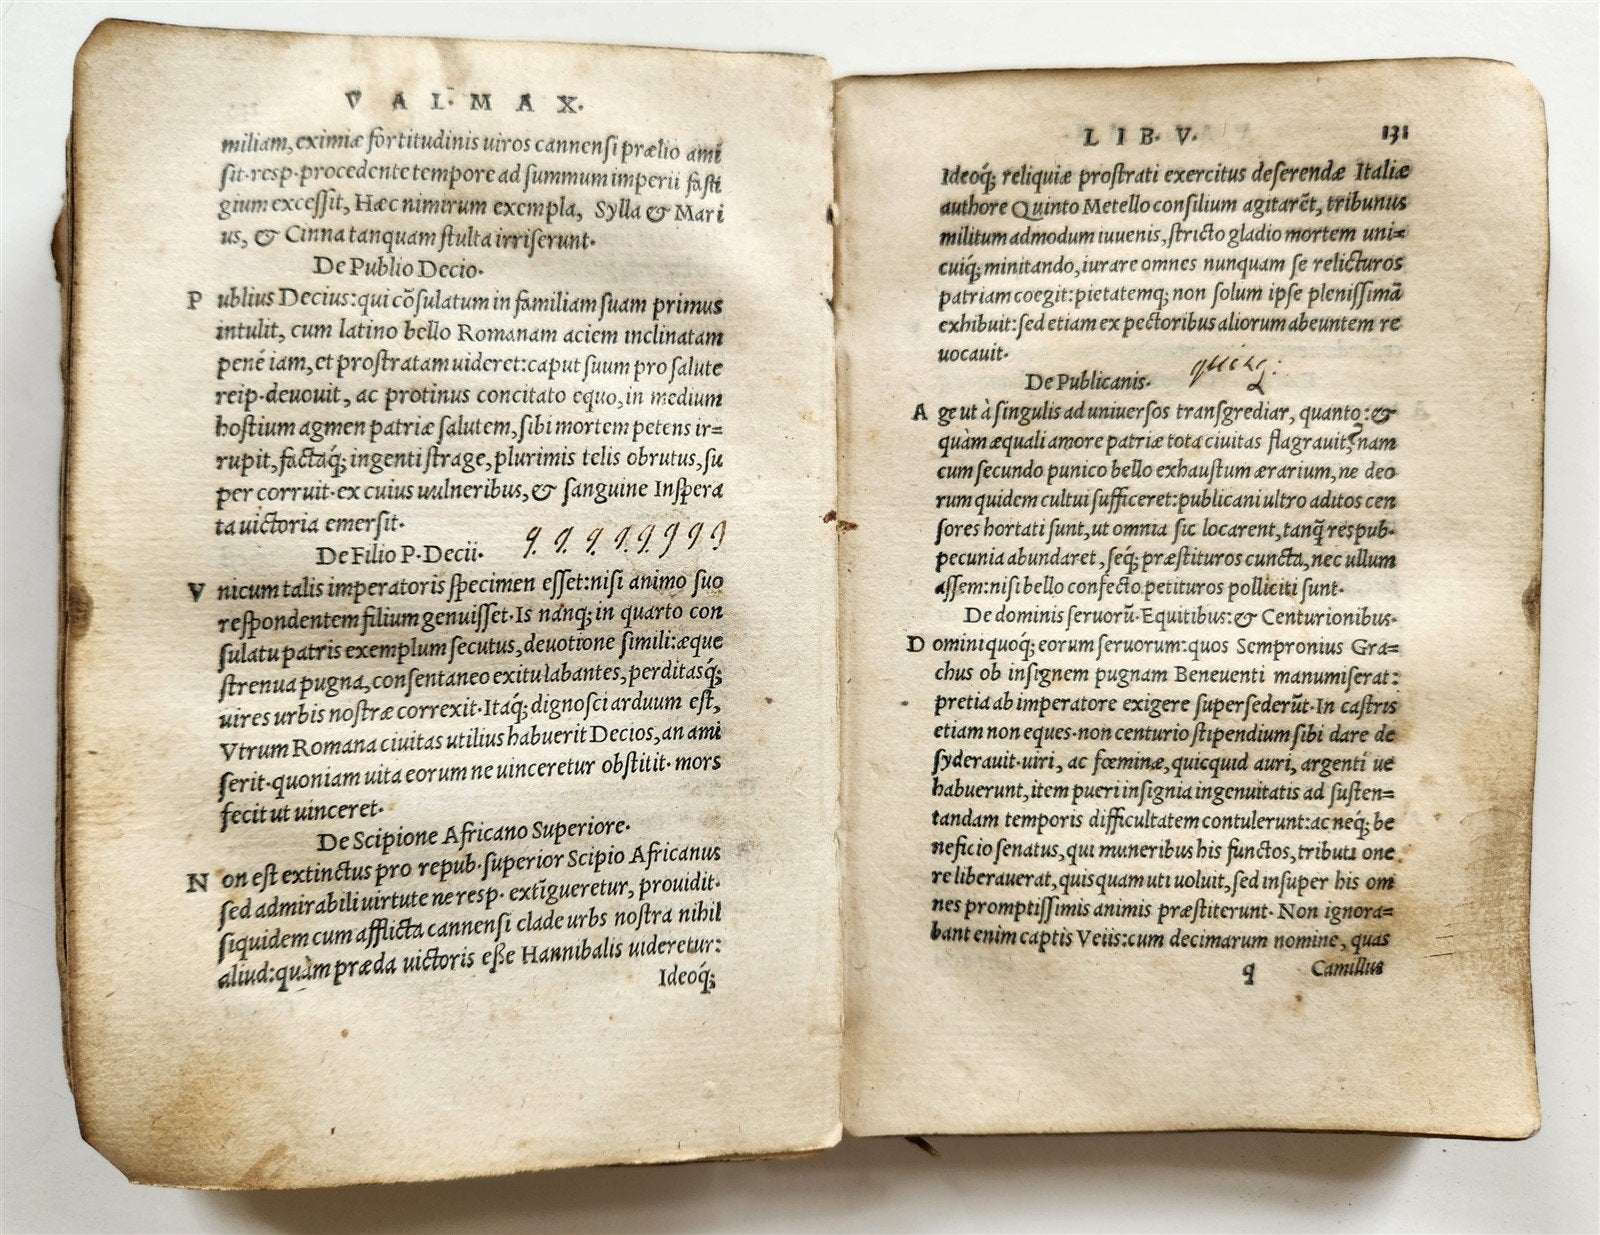 VAL. MAX.
miliam, eximiæ fortitudinis uiros cannensi prælio ami
sit. resp. procedente tempore ad summum imperii fasti
gium excessit, Hæc nimirum exempla, Sylla & Mari
us, & Cinna tanquam stulta irriserunt.
De Publio Decio.
P ublius Decius: qui cõsulatum in familiam suam primus
intulit, cum latino bello Romanam aciem inclinatam
pene iam, et prostratam uideret: caput suum pro salute
reip. deuouit, ac protinus concitato equo, in medium
hostium agmen patriæ salutem, sibi mortem petens ir=
rupit, factaq́; ingenti strage, plurimis telis obrutus, su
per corruit. ex cuius uulneribus, & sanguine Inspera
ta uictoria emersit.
De Filio P. Decii. q. q. q q. q. q q q
V nicum talis imperatoris specimen esset: nisi animo suo
respondentem filium genuisset. Is nanq; in quarto con
sulatu patris exemplum secutus, deuotione simili: æque
strenua pugna, consentaneo exitu labantes, perditasq́;
uires urbis nostræ correxit. Itaq́; dignosci arduum est,
Vtrum Romana ciuitas utilius habuerit Decios, an ami
serit. quoniam uita eorum ne uinceretur obstitit. mors
fecit ut uinceret.
De Scipione Africano Superiore.
N on est extinctus pro repub. superior Scipio Africanus
sed admirabili uirtute ne resp. extĩgueretur, prouidit.
siquidem cum afflicta cannensi clade urbs nostra nihil
aliud: quàm præda uictoris eße Hannibalis uideretur:
Ideoq́;
LIB. V. 131
Ideoq́; reliquiæ prostrati exercitus deserendæ Italiæ
authore Quinto Metello consilium agitarẽt, tribunus
militum admodum iuuenis, stricto gladio mortem uni=
cuiq́; minitando, iurare omnes nunquam se relicturos
patriam coegit: pietatemq; non solum ipse plenissimã
exhibuit: sed etiam ex pectoribus aliorum abeuntem re
uocauit.
De Publicanis.
A ge ut à singulis ad uniuersos transgrediar, quanto: &
quàm æquali amore patriæ tota ciuitas flagrauit? nam
cum secundo punico bello exhaustum ærarium, ne deo
rum quidem cultui sufficeret: publicani ultro aditos cen
sores hortati sunt, ut omnia sic locarent, tanq̃ respub.
pecunia abundaret, seq́; præstituros cuncta, nec ullum
assem: nisi bello confecto petituros polliciti sunt.
De dominis seruorũ. Equitibus: & Centurionibus.
D omini quoq́; eorum seruorum: quos Sempronius Gra=
chus ob insignem pugnam Beneuenti manumiserat:
pretia ab imperatore exigere supersederũt. In castris
etiam non eques. non centurio stipendium sibi dare de
syderauit. uiri, ac fœminæ, quicquid auri, argenti ue
habuerunt, item pueri insignia ingenuitatis ad susten=
tandam temporis difficultatem contulerunt: ac neq́; be
neficio senatus, qui muneribus his functos, tributi one
re liberauerat, quisquam uti uoluit, sed insuper his om
nes promptissimis animis præstiterunt. Non ignora=
bant enim captis Veiis: cum decimarum nomine, quas
q Camillus